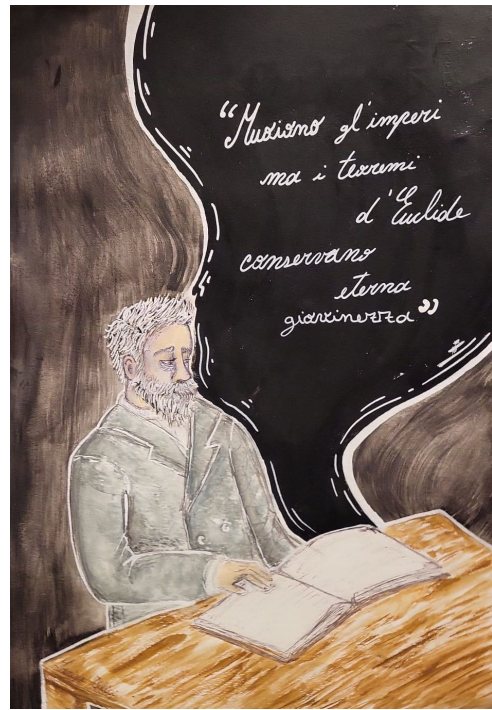 “Muoiono gl'imperi
ma i teoremi
d'Euclide
conservano
eterna
giovinezza”